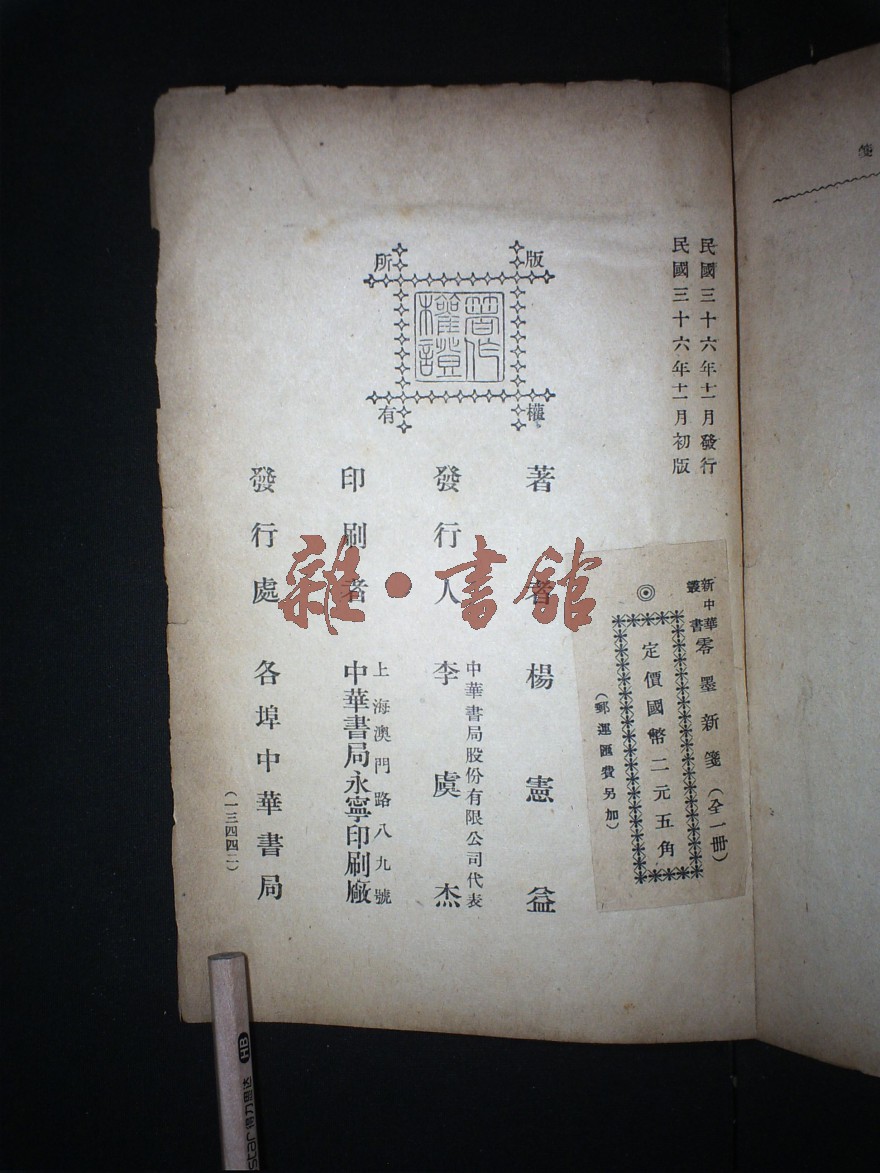 民國三十六年十二月發行
民國三十六年十二月初版
新中華叢書
零墨新箋（全一冊）
◎定價國幣二元五角
（郵運匯費另加）
版權所有
著作權證
著者 楊憲益
發行人 李虞杰
中華書局股份有限公司代表
印刷者 中華書局永寧印刷廠
上海澳門路八九號
發行處 各埠中華書局
（一三四四二）
箋
雜·書館
HB
得力图达
star